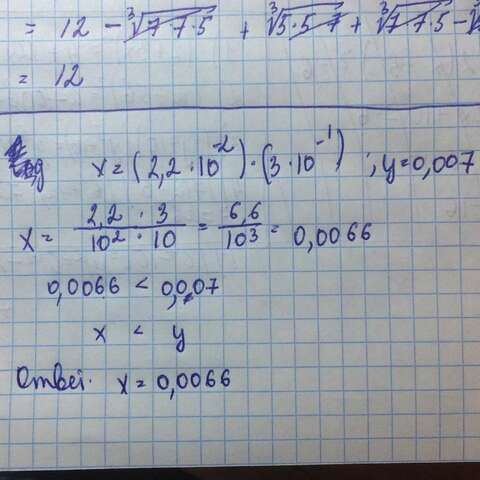 = 12 - ∛7·7·5 + ∛5·5·7 + ∛7·7·5 -
= 12
x = (2,2 · 10⁻²) · (3 · 10⁻¹) ; y = 0,007
x = (2,2 · 3)/(10² · 10) = 6,6/10³ = 0,0066
0,0066 < 0,007
x < y
Ответ. x = 0,0066